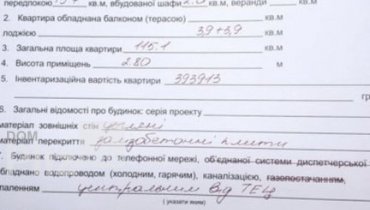 вбудованої шафи 2.0 кв.м, веранди кв.м
2. Квартира обладнана балконом (терасою) кв.м
лоджією 3,9+3,9 кв.м
3. Загальна площа квартири 115.1 кв.м
4. Висота приміщень 2.80 м
5. Інвентаризаційна вартість квартири 393913
гр
6. Загальні відомості про будинок: серія проекту
матеріал зовнішніх стін цегляні
матеріал перекриття залізобетонні плити
7. Будинок підключено до телефонної мережі, об'єднаної системи диспетчерської
обладнано водопроводом (холодним, гарячим), каналізацією, газопостачанням,
паленням центральним від ТЕЦ
( указати яким)
DOM